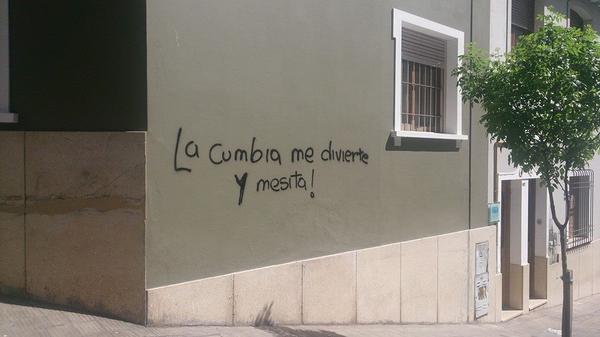 La cumbia me divierte
y mesita!